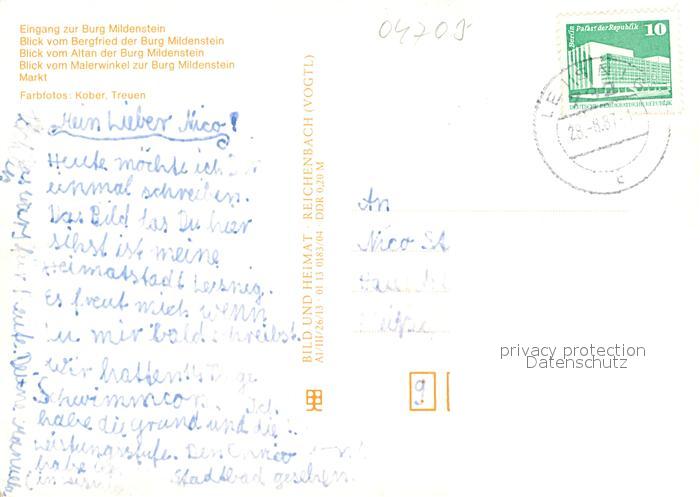 Eingang zur Burg Mildenstein
Blick vom Bergfried der Burg Mildenstein
Blick vom Altan der Burg Mildenstein
Blick vom Malerwinkel zur Burg Mildenstein
Markt
Farbfotos: Kober, Treuen
04705
Berlin Palast der Republik
10
DEUTSCHE DEMOKRATISCHE REPUBLIK
LEISN
28.-8.87
c
Mein Lieber Nico!
Heute möchte ich Dir
einmal schreiben.
Das Bild das Du hier
sihst ist meine
Heimatstadt Leisnig.
Es freut mich wenn
Du mir bald schreibst.
Wir hatten
Schwimmcon. Ich
habe die Grund und die
Leistungsstufe. Den
habe
Stadtbad gesehen.
Das wars für Heute. Deine
BILD UND HEIMAT · REICHENBACH (VOGTL)
A1/III/26/13 · 01 13 0183/04 DDR 0,20 M
An
Nico St
9
privacy protection
Datenschutz